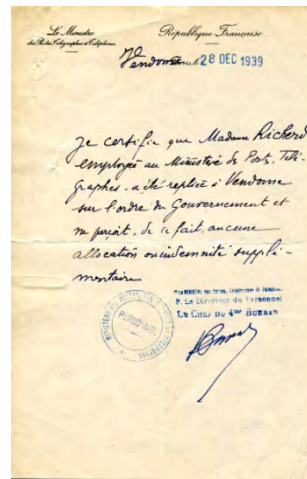 Le Ministre
des Postes, Télégraphes et Téléphones
République Française
Vendôme le 28 DEC 1939
Je certifie que Madame Richard
employée au Ministère des Postes, Télé-
graphes - a été repliée à Vendôme
sur l'ordre du Gouvernement et
ne perçoit, de ce fait, aucune
allocation ou indemnité supplé-
mentaire
P. le MINISTRE des Postes, Télégraphes et Téléphones
P. Le Directeur du Personnel
LE CHEF DU 4me BUREAU
PERSONNEL